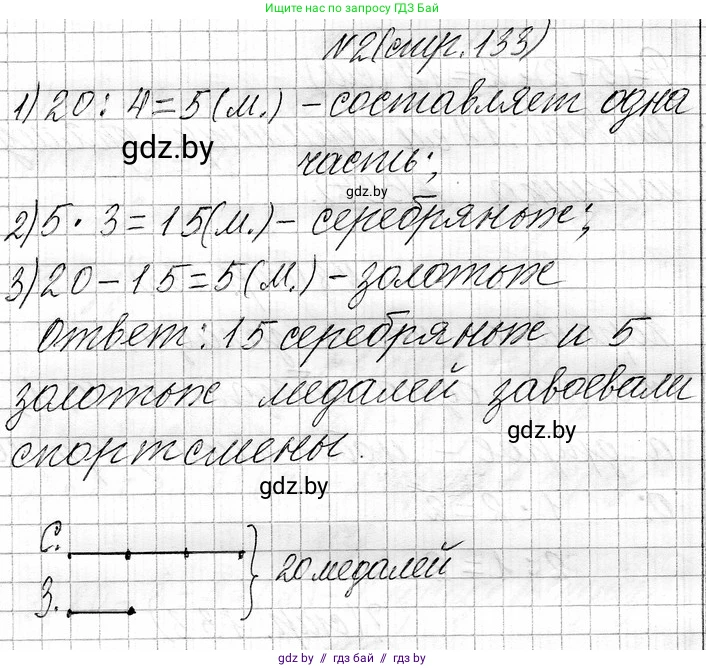 Ищите нас по запросу ГДЗ Бай
№2(стр. 133)
1) 20 : 4 = 5 (м.) – составляет одна
gdz.by
часть;
gdz.by
2) 5 · 3 = 15 (м.) – серебряных;
3) 20 – 15 = 5 (м.) – золотых
Ответ: 15 серебряных и 5
золотых медалей завоевали
gdz.by
спортсмены.
gdz.by
С.
20 медалей
З.
gdz.by // гдз бай // gdz.by